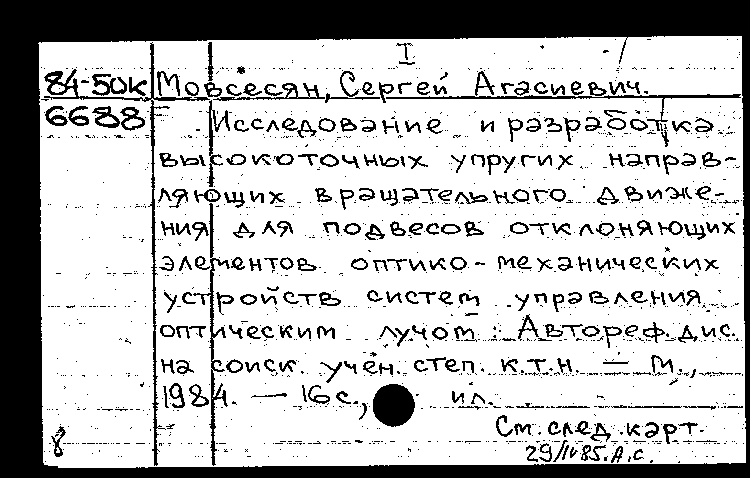 I
84-50к Мовсесян, Сергей Агасиевич.
6688 Исследование и разработка
высокоточных упругих направ-
ляющих вращательного движе-
ния для подвесов отклоняющих
элементов оптико-механических
устройств систем управления
оптическим лучом : Автореф. дис.
на соиск. учен. степ. к.т.н. — М.,
1984. — 16 с., ил.
См. след. карт.
8 29/IV85. А.С.